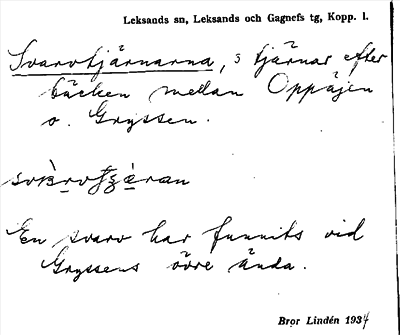 Leksands sn, Leksands och Gagnefs tg, Kopp. l.
Svarvtjärnarna, 3 tjärnar efter
bäcken mellan Oppåjen
o. Gryssen.
En svarv har funnits vid
Gryssens övre ända.
Bror Lindén 1934